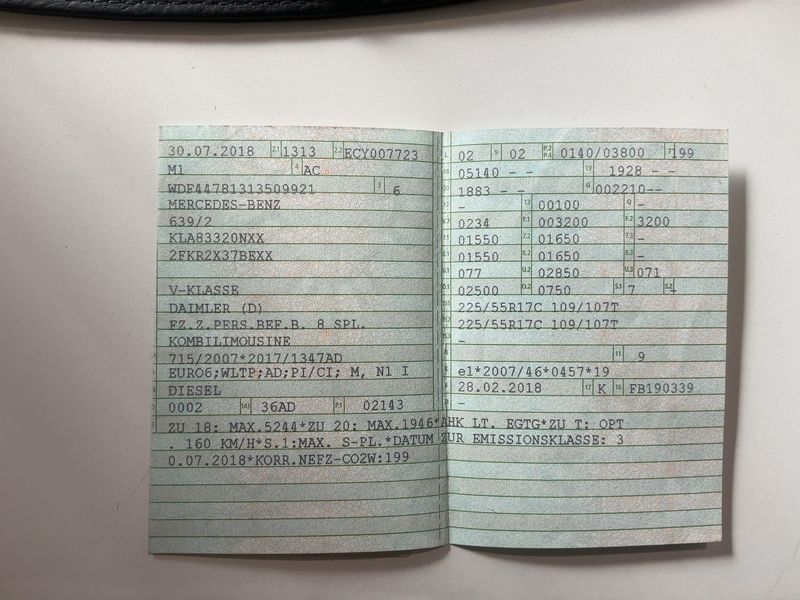 30.07.2018 2.1 1313 2.2 ECY007723
M1 4 AC
WDF44781313509921 3 6
MERCEDES-BENZ
639/2
KLA83320NXX
2FKR2X37BEXX
V-KLASSE
DAIMLER (D)
FZ.Z.PERS.BEF.B. 8 SPL.
KOMBILIMOUSINE
715/2007*2017/1347AD
EURO6;WLTP;AD;PI/CI; M, N1 I
DIESEL
0002 14.1 36AD P.3 02143
02 9 02 P.2 P.4 0140/03800 T 199
05140 - - 19 1928 - -
1883 - - G 002210--
- 13 00100 Q -
0234 F.1 003200 F.2 3200
01550 7.2 01650 7.3 -
01550 8.2 01650 8.3 -
077 U.2 02850 U.3 071
02500 O.2 0750 S.1 7 S.2 -
225/55R17C 109/107T
225/55R17C 109/107T
-
11 9
e1*2007/46*0457*19
28.02.2018 17 K 16 FB190339
-
ZU 18: MAX.5244*ZU 20: MAX.1946*AHK LT. EGTG*ZU T: OPT
. 160 KM/H*S.1:MAX. S-PL.*DATUM ZUR EMISSIONSKLASSE: 3
0.07.2018*KORR.NEFZ-CO2W:199